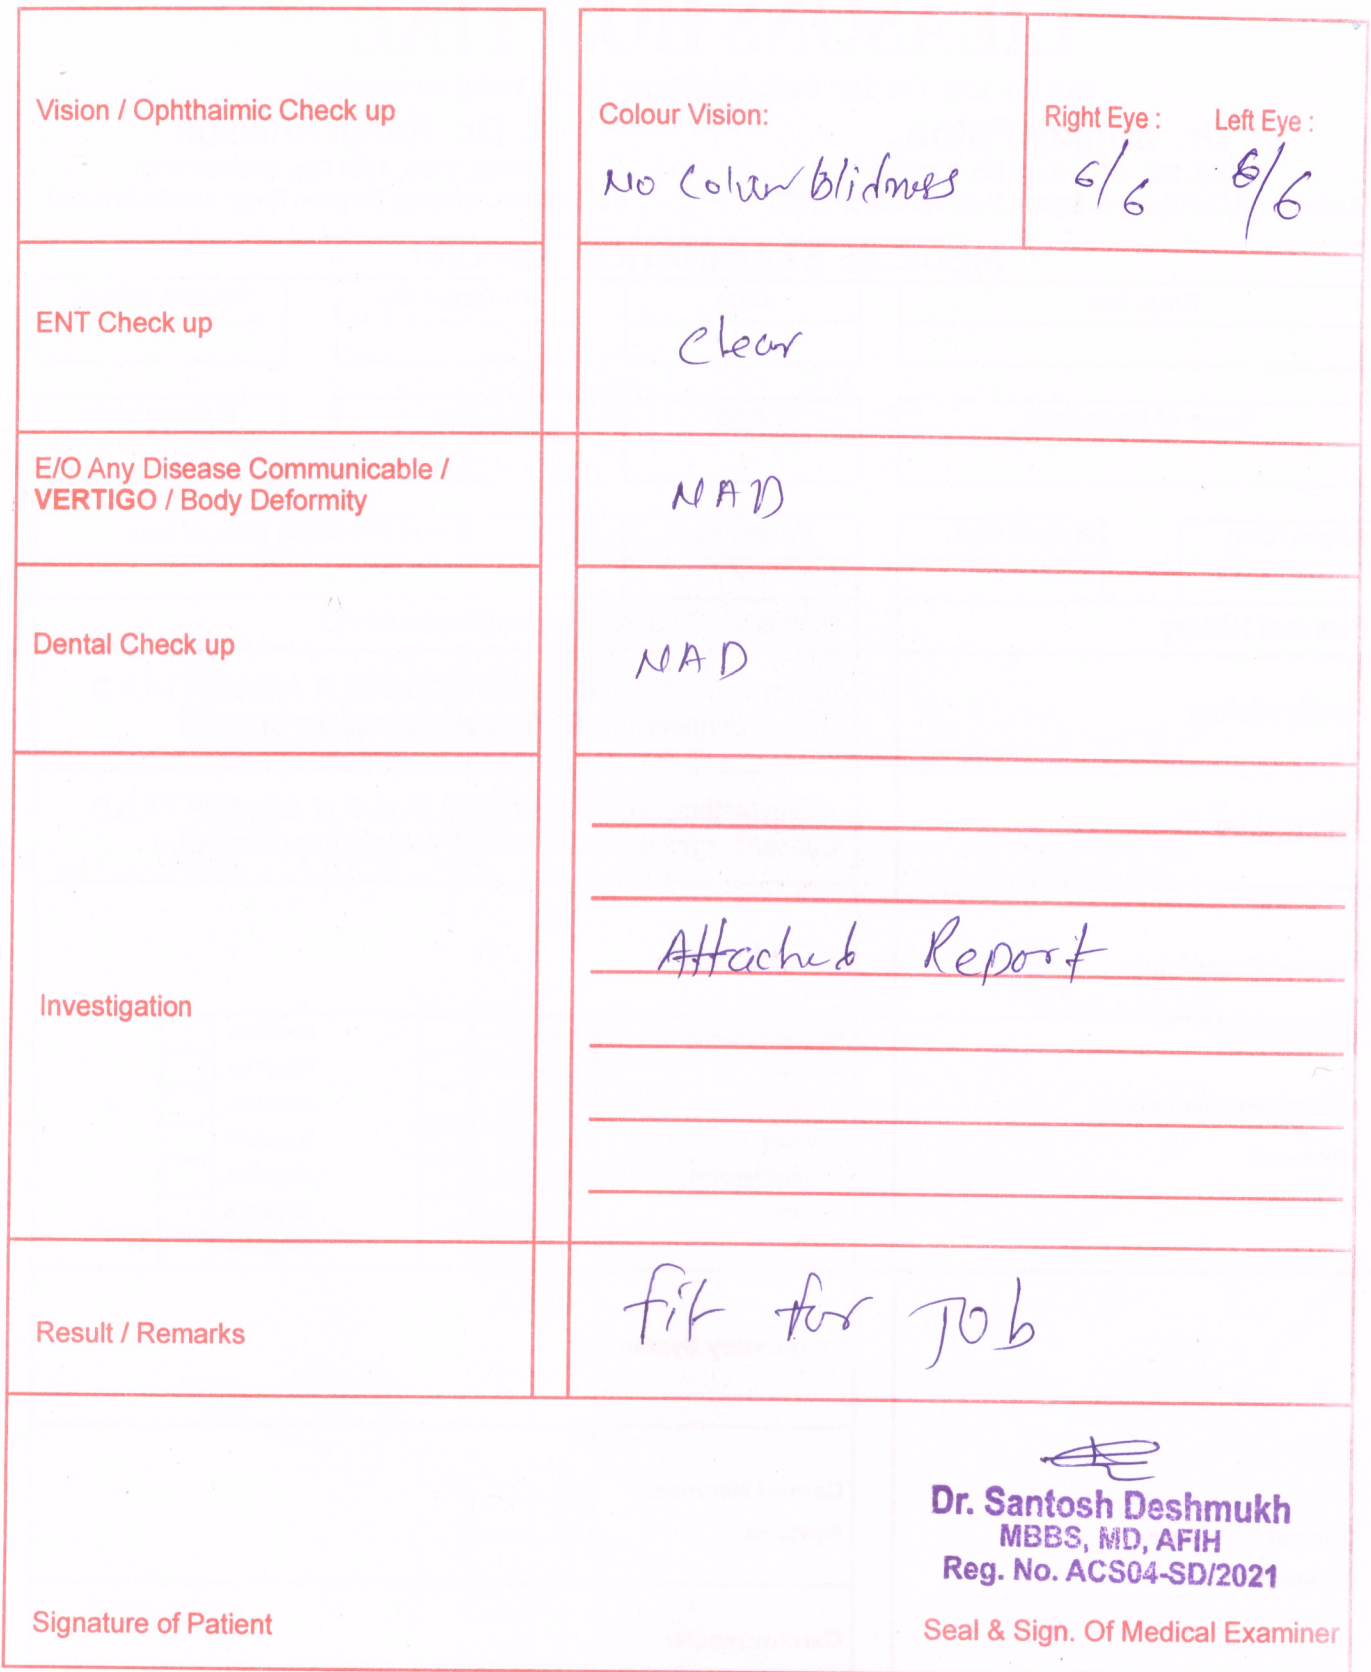 Vision / Ophthaimic Check up
Colour Vision:
Right Eye :
Left Eye :
No Colour blidness
6/6
6/6
ENT Check up
Clear
E/O Any Disease Communicable /
VERTIGO / Body Deformity
NAD
Dental Check up
NAD
Investigation
Attached Report
Result / Remarks
fit for Job
Dr. Santosh Deshmukh
MBBS, MD, AFIH
Reg. No. ACS04-SD/2021
Signature of Patient
Seal & Sign. Of Medical Examiner